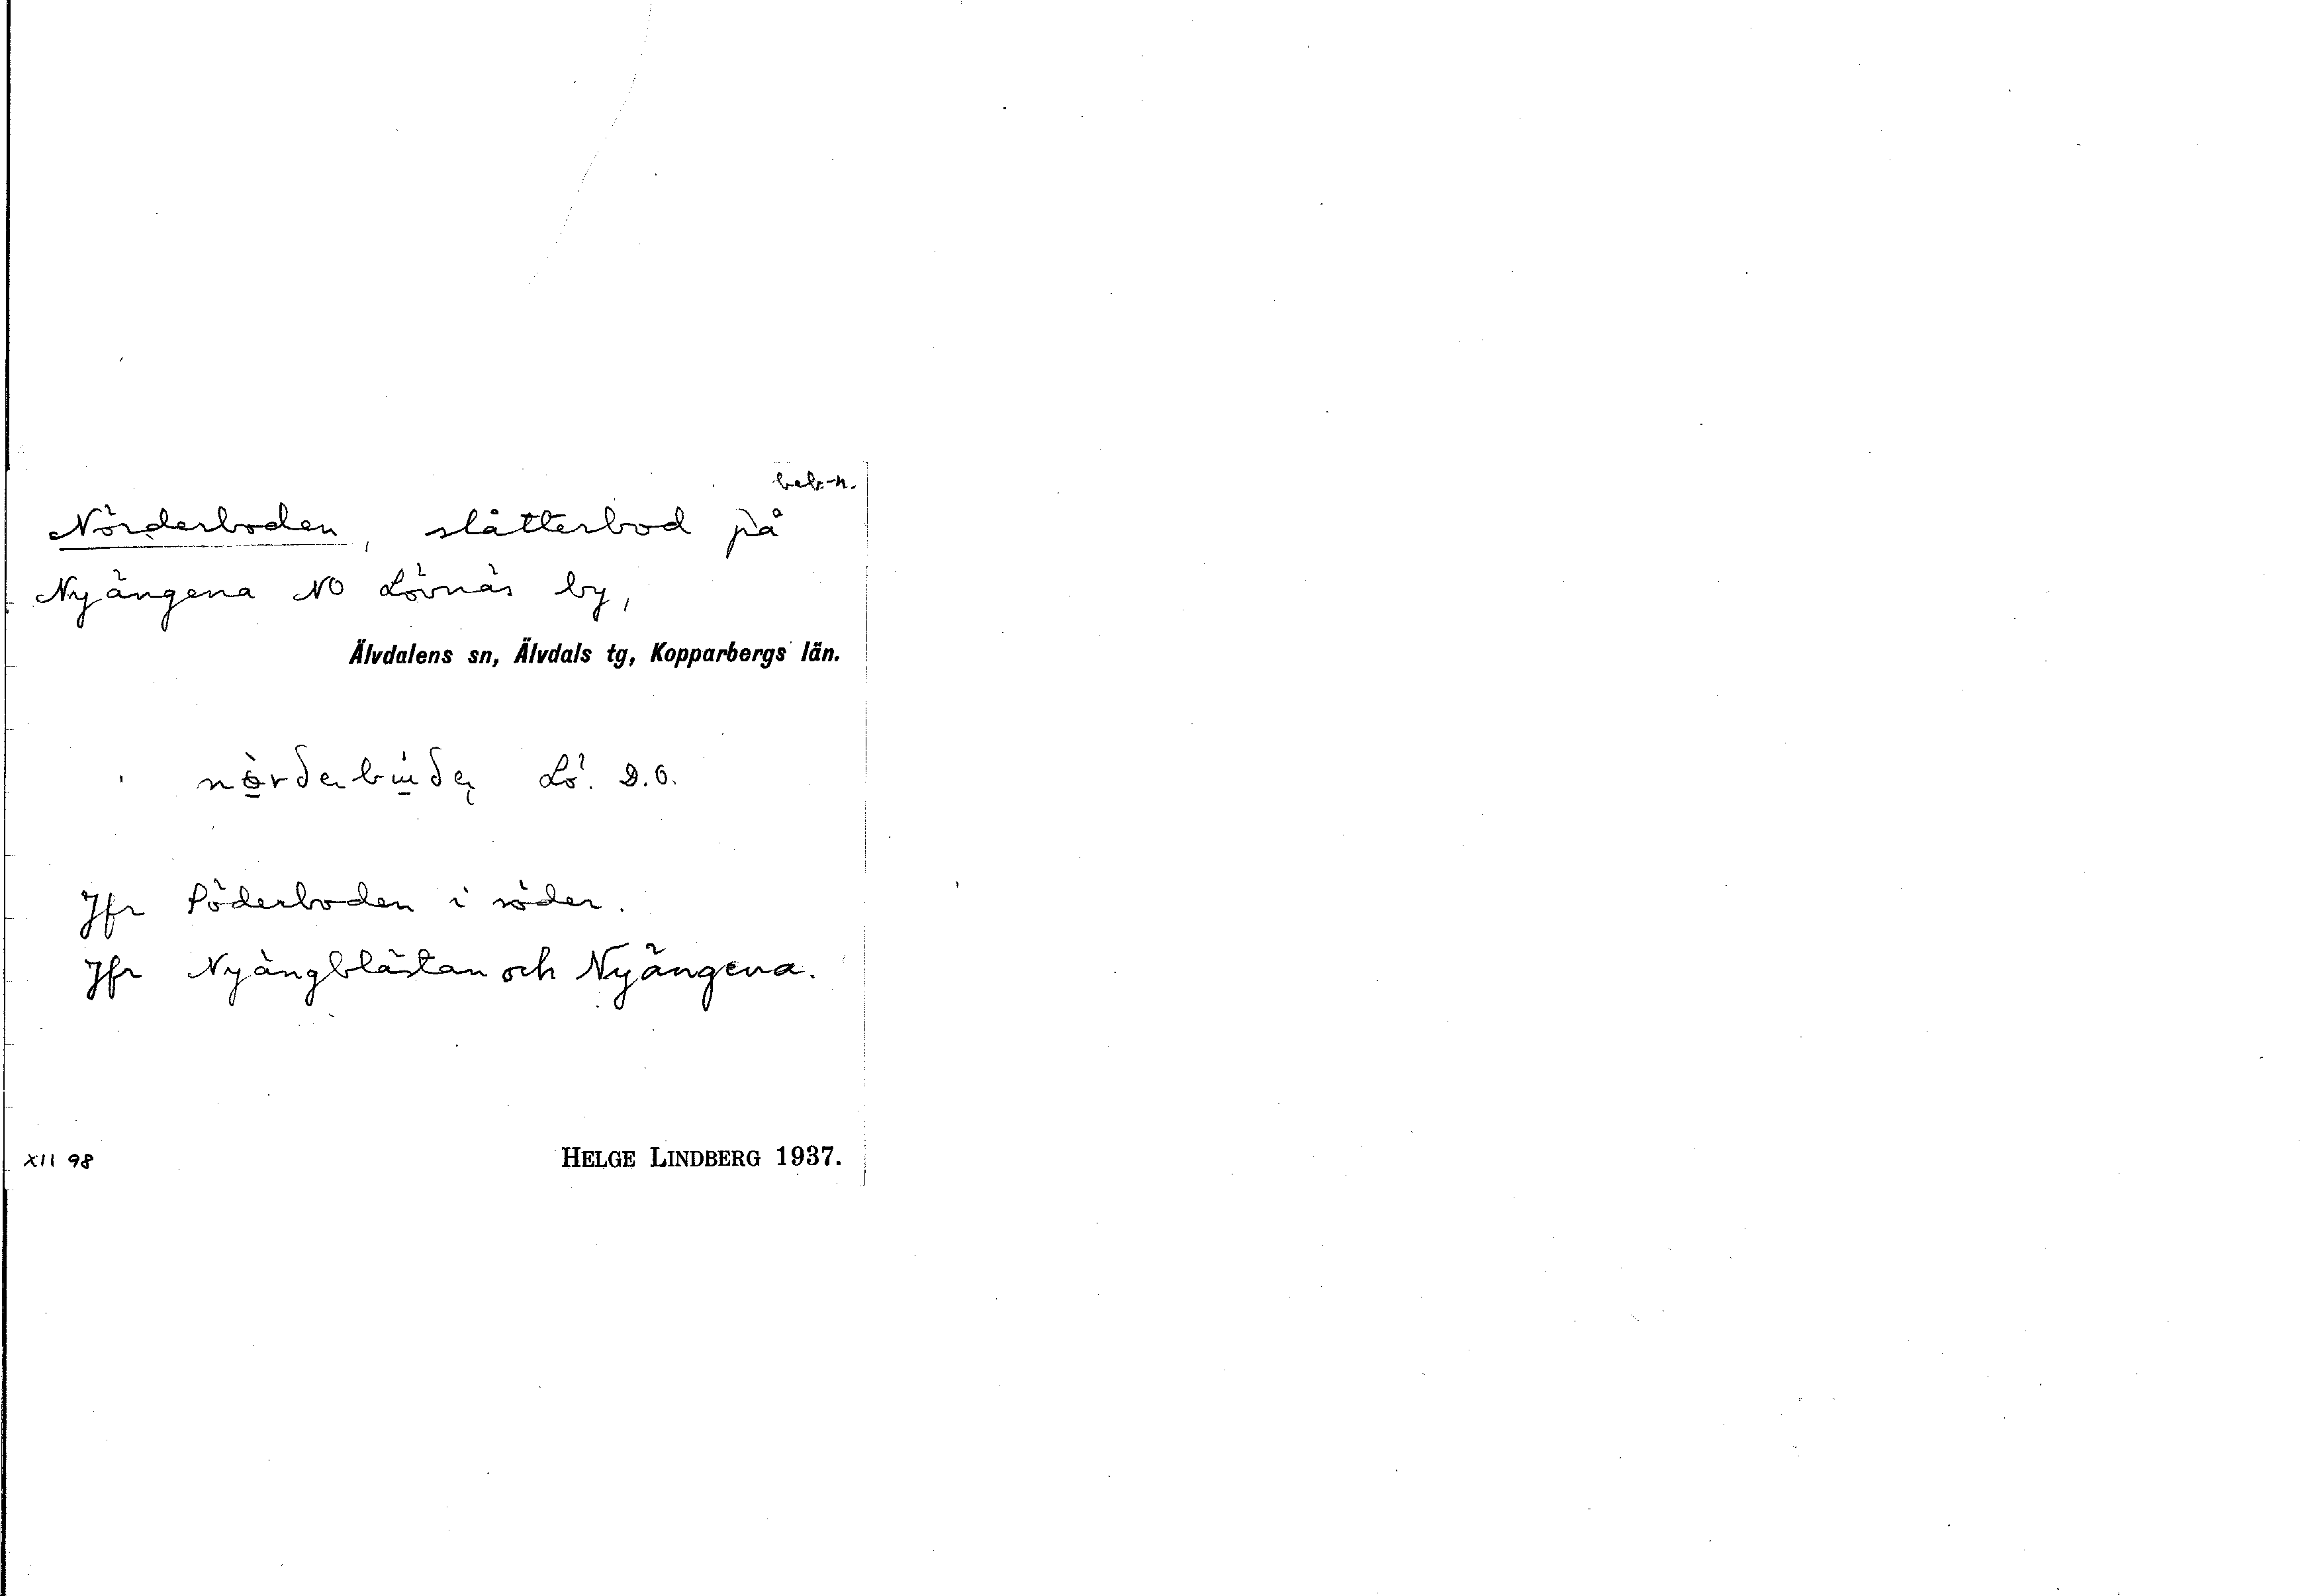 beb.-n.
Nörderboden, slåtterbod på
Nyängena NO Lövnäs by,
Älvdalens sn, Älvdals tg, Kopparbergs län.
Lö. D.O.
Jfr Söderboden i söder.
Jfr Nyängblästan och Nyängena.
XII 98
HELGE LINDBERG 1937.